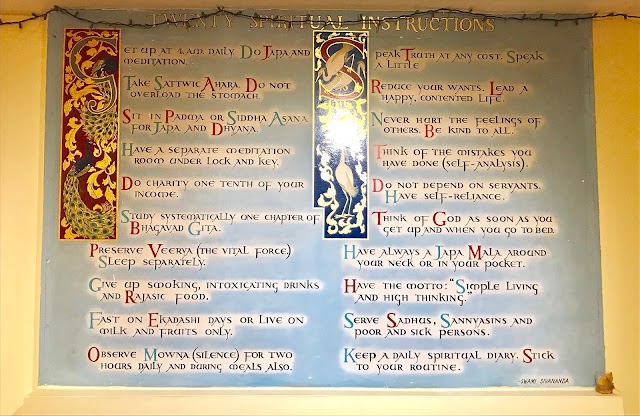 TWENTY SPIRITUAL INSTRUCTIONS
GET UP AT 4 A.M. DAILY. DO JAPA AND
MEDITATION.
TAKE SATTWIC AHARA. DO NOT
OVERLOAD THE STOMACH.
SIT IN PADMA OR SIDDHA ASANA
FOR JAPA AND DHYANA.
HAVE A SEPARATE MEDITATION
ROOM UNDER LOCK AND KEY.
DO CHARITY ONE TENTH OF YOUR
INCOME.
STUDY SYSTEMATICALLY ONE CHAPTER OF
BHAGAVAD GITA.
PRESERVE VEERYA (THE VITAL FORCE)
SLEEP SEPARATELY.
GIVE UP SMOKING, INTOXICATING DRINKS
AND RAJASIC FOOD.
FAST ON EKADASHI DAYS OR LIVE ON
MILK AND FRUITS ONLY.
OBSERVE MOWNA (SILENCE) FOR TWO
HOURS DAILY AND DURING MEALS ALSO.
SPEAK TRUTH AT ANY COST. SPEAK
A LITTLE
REDUCE YOUR WANTS. LEAD A
HAPPY, CONTENTED LIFE.
NEVER HURT THE FEELINGS OF
OTHERS. BE KIND TO ALL.
THINK OF THE MISTAKES YOU
HAVE DONE (SELF-ANALYSIS).
DO NOT DEPEND ON SERVANTS.
HAVE SELF-RELIANCE.
THINK OF GOD AS SOON AS YOU
GET UP AND WHEN YOU GO TO BED.
HAVE ALWAYS A JAPA MALA AROUND
YOUR NECK OR IN YOUR POCKET.
HAVE THE MOTTO: "SIMPLE LIVING
AND HIGH THINKING."
SERVE SADHUS, SANNYASINS AND
POOR AND SICK PERSONS.
KEEP A DAILY SPIRITUAL DIARY. STICK
TO YOUR ROUTINE.
- SWAMI SIVANANDA